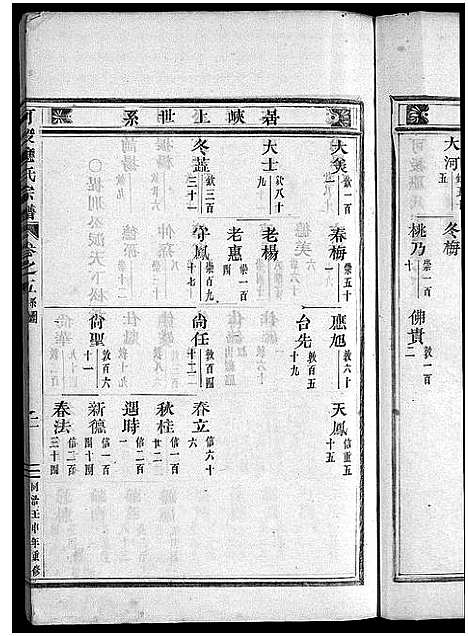 大河
五
冬梅
桃乃 崇一百
十
佛貴 敦一百
二
居峽上世系
大美 欽一百
一
春梅 崇五十
一
應旭 敦六十
台先 敦百五
十九
天鳳 信重五
十五
大士 欽八十
九
老楊
老惠 崇一百
四
冬蔬 欽三百
三十一
守鳳 崇百九
十七
尚任 敦百四
十二
尚聖 敦百六
十一
春立 信六十
六
秋桂 信二百
廿二
遇時 信二百
一
新德 信百六
四十四
春法 信二百
三十四
氏宗譜
卷之五系圖
二
同治壬申年重修